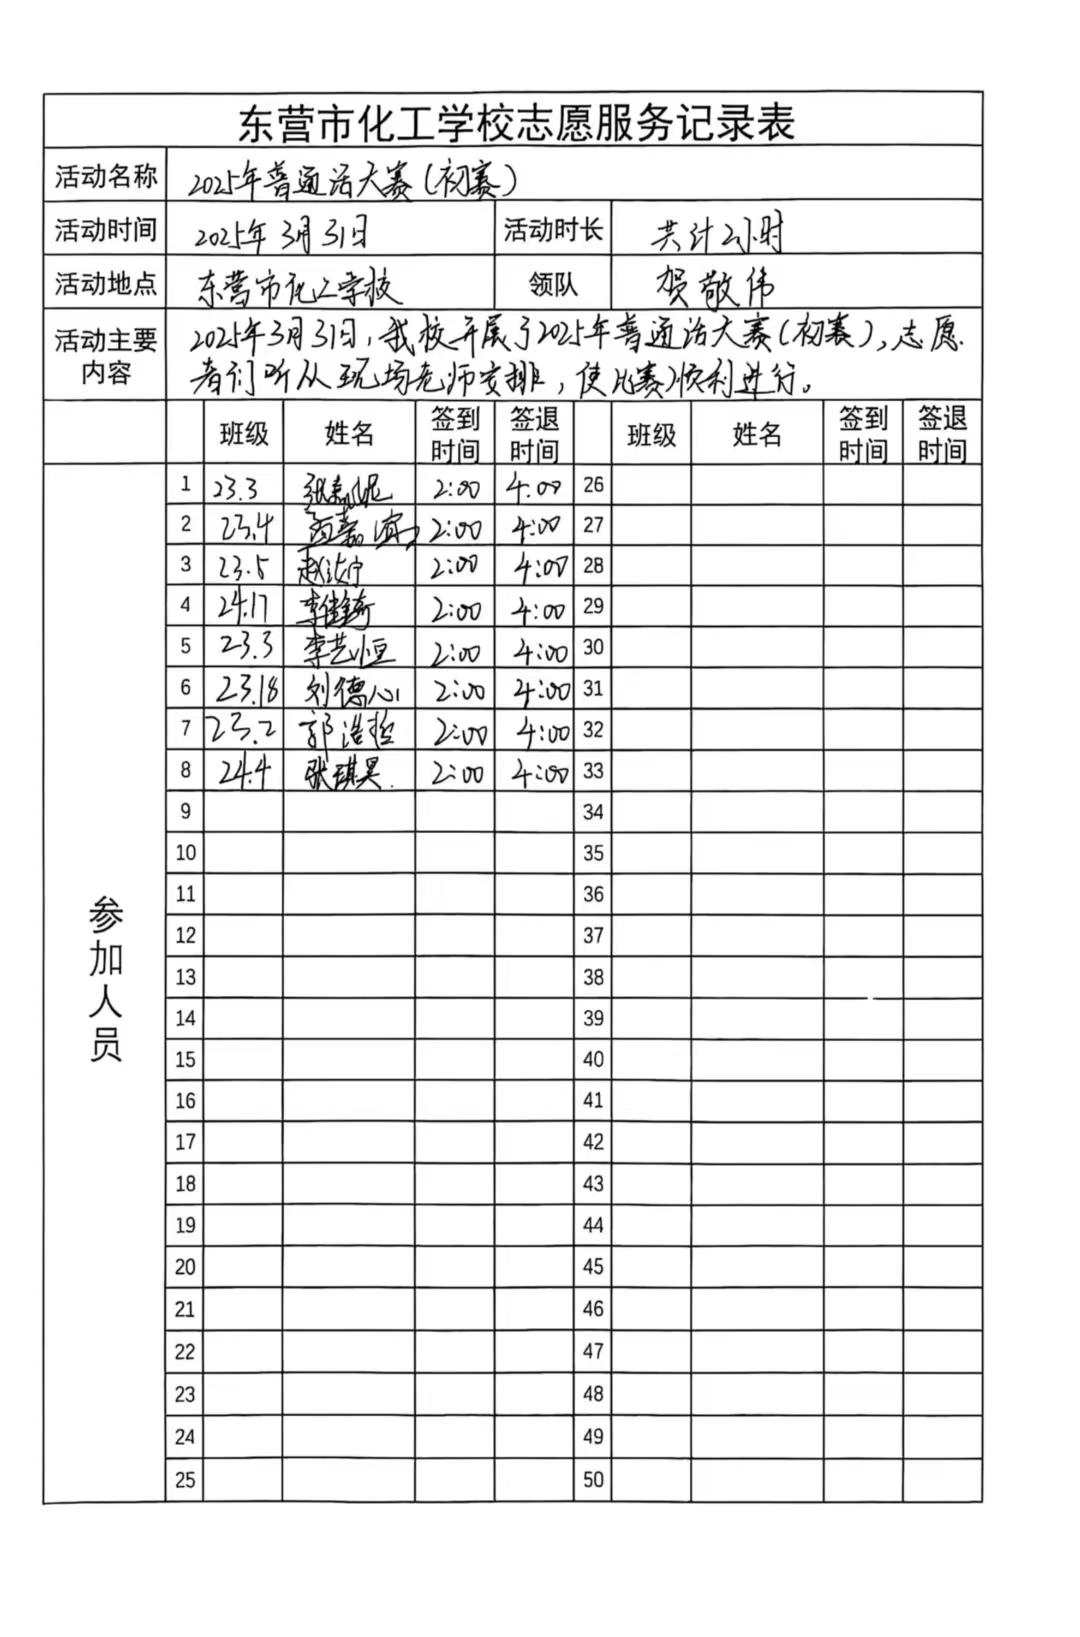 东营市化工学校志愿服务记录表
活动名称 2025年普通话大赛(初赛)
活动时间 2025年3月31日 活动时长 共计2小时
活动地点 东营市化工学校 领队 贺敬伟
活动主要内容 2025年3月31日,我校开展了2025年普通话大赛(初赛),志愿
者们听从现场老师安排,使比赛顺利进行。
班级 姓名 签到时间 签退时间 班级 姓名 签到时间 签退时间
参加人员
1 23.3 2:00 4:00 26
2 23.4 2:00 4:00 27
3 23.5 2:00 4:00 28
4 24.17 2:00 4:00 29
5 23.3 李艺恒 2:00 4:00 30
6 23.18 刘德心 2:00 4:00 31
7 23.2 郭浩哲 2:00 4:00 32
8 24.4 张琪昊 2:00 4:00 33
9 34
10 35
11 36
12 37
13 38
14 39
15 40
16 41
17 42
18 43
19 44
20 45
21 46
22 47
23 48
24 49
25 50